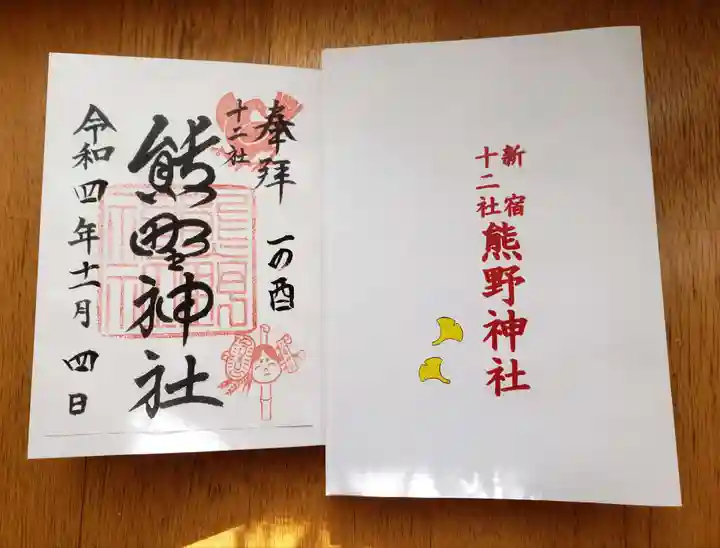 奉拝
一の酉
十二社
熊野神社
令和四年十一月四日
新宿
十二社
熊野神社